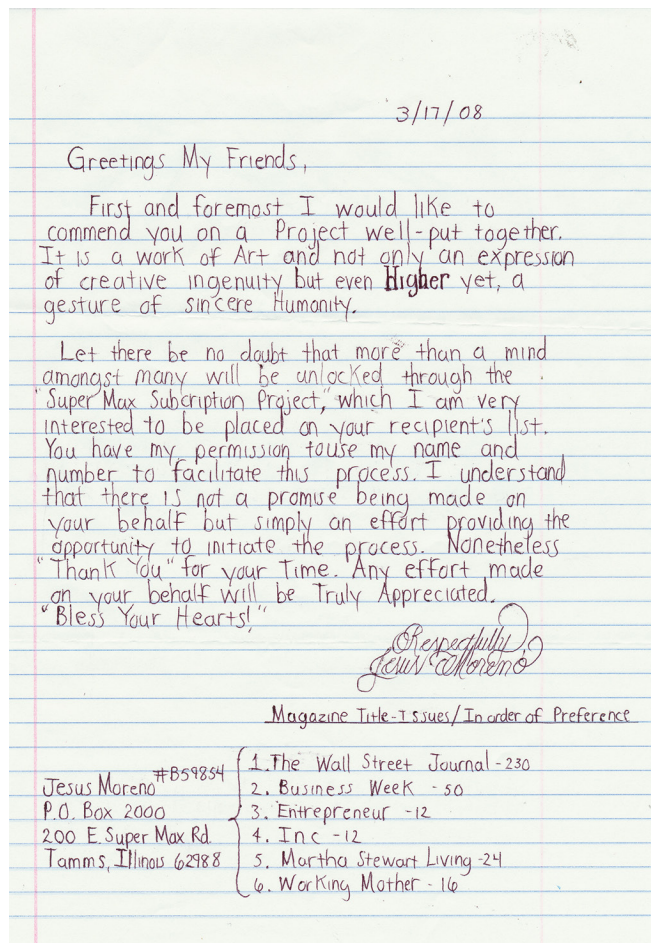 3/17/08
Greetings My Friends,
First and foremost I would like to
commend you on a Project well-put together.
It is a work of Art and not only an expression
of creative ingenuity but even Higher yet, a
gesture of sincere Humanity.
Let there be no doubt that more than a mind
amongst many will be unlocked through the
"Super Max Subcription Project," which I am very
interested to be placed on your recipient's list.
You have my permission touse my name and
number to facilitate this process. I understand
that there is not a promise being made on
your behalf but simply an effort providing the
opportunity to initiate the process. Nonetheless
"Thank You" for your Time. Any effort made
on your behalf will be Truly Appreciated.
"Bless Your Hearts!"
Respectfully
Jesus Moreno
Magazine Title-Issues/In order of Preference
Jesus Moreno #B59854
P.O. Box 2000
200 E. Super Max Rd.
Tamms, Illinois 62988
1. The Wall Street Journal -230
2. Business Week -50
3. Entrepreneur -12
4. Inc -12
5. Martha Stewart Living -24
6. Working Mother - 16